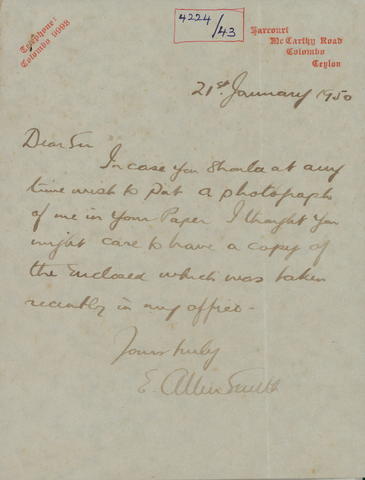 Telephone:
Colombo 9998
4224/43
Harcourt
McCarthy Road
Colombo
Ceylon
21st January 1950
Dear Sir
In case you should at any
time wish to put a photograph
of me in your Paper I thought you
might care to have a copy of
the enclosed which was taken
recently in my office -
Yours truly
E. Allen Smith